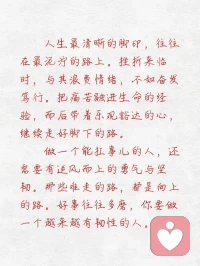 人生最清晰的脚印，往往
在最泥泞的路上。挫折来临
时，与其浪费情绪，不如奋发
笃行。把痛苦融进生命的经
验，而后带着乐观豁达的心，
继续走好脚下的路。
做一个能扛事儿的人，还
意要有迎风而上的勇气与坚
韧。那些难走的路，都是向上
的路。好事往往多磨，你要做
一个越来越有韧性的人。